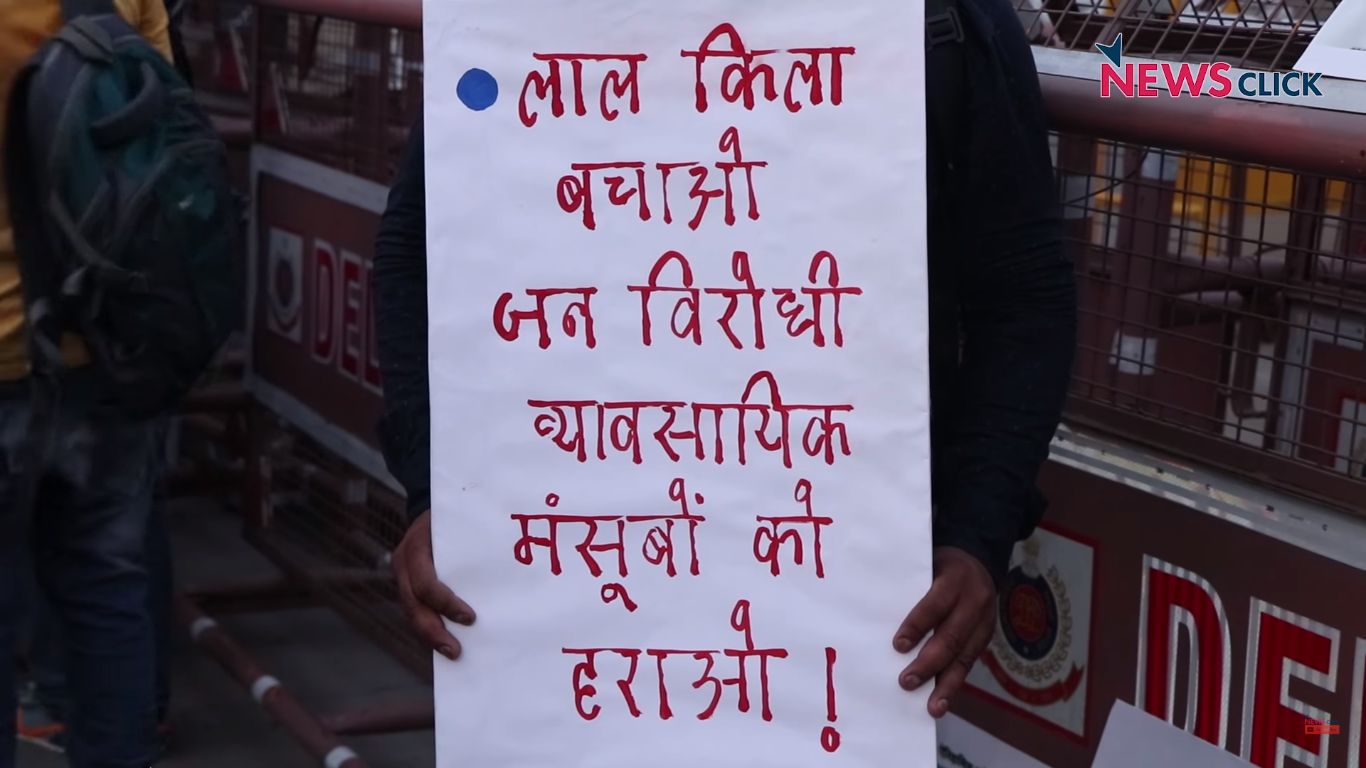 NEWSCLICK
लाल किला
बचाओ
जन विरोधी
व्यावसायिक
मंसूबों को
हराओ !
DEL
DE